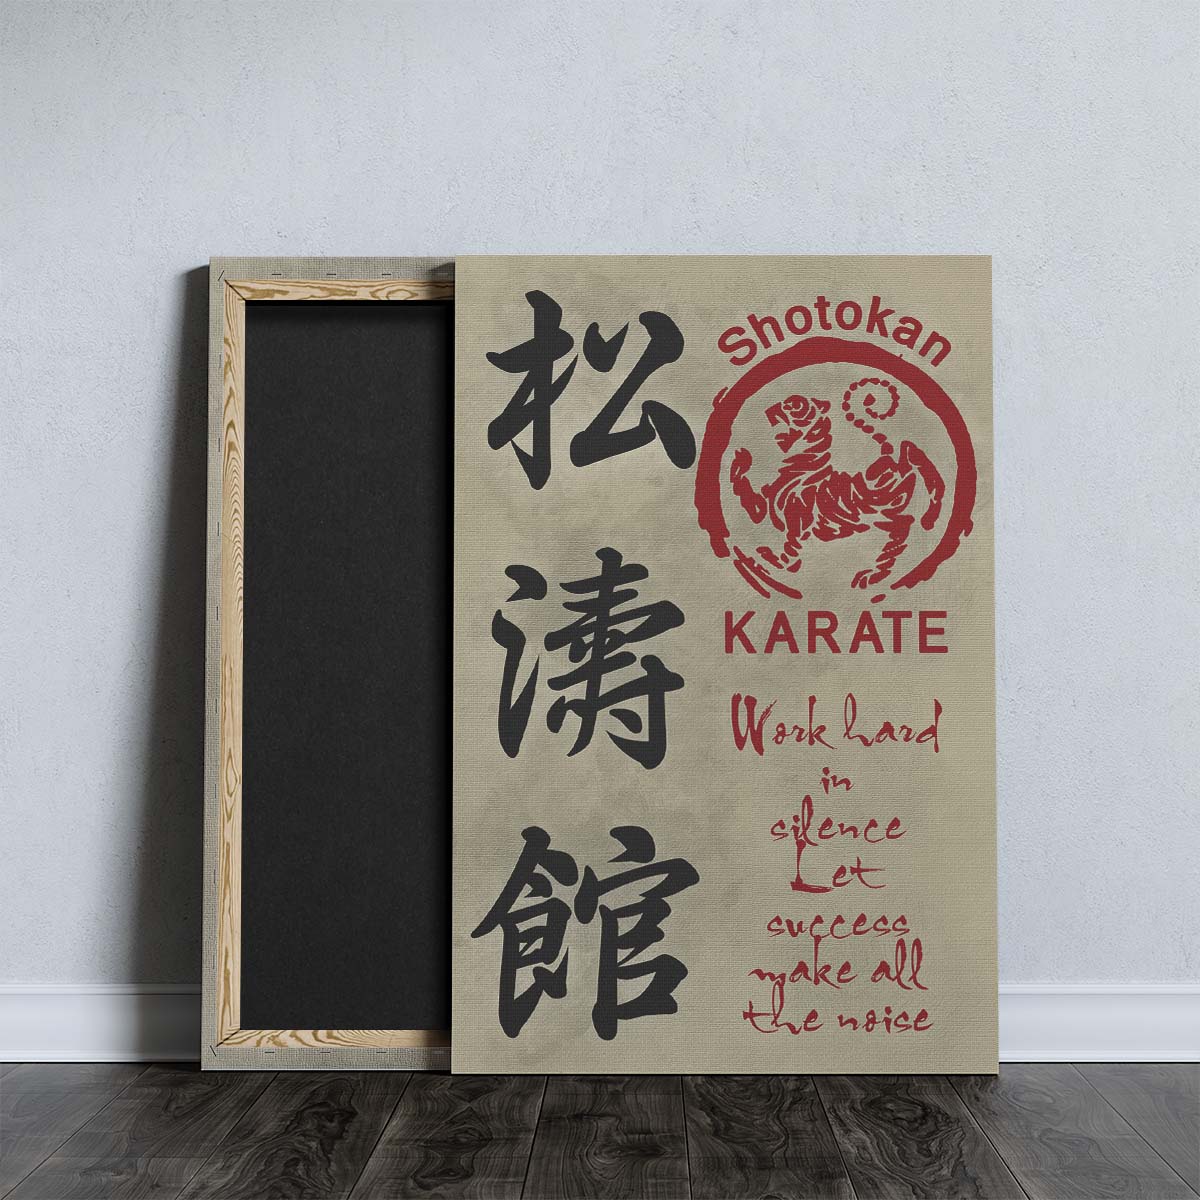 松濤館
Shotokan
KARATE
Work hard
in
silence
Let
success
make all
the noise